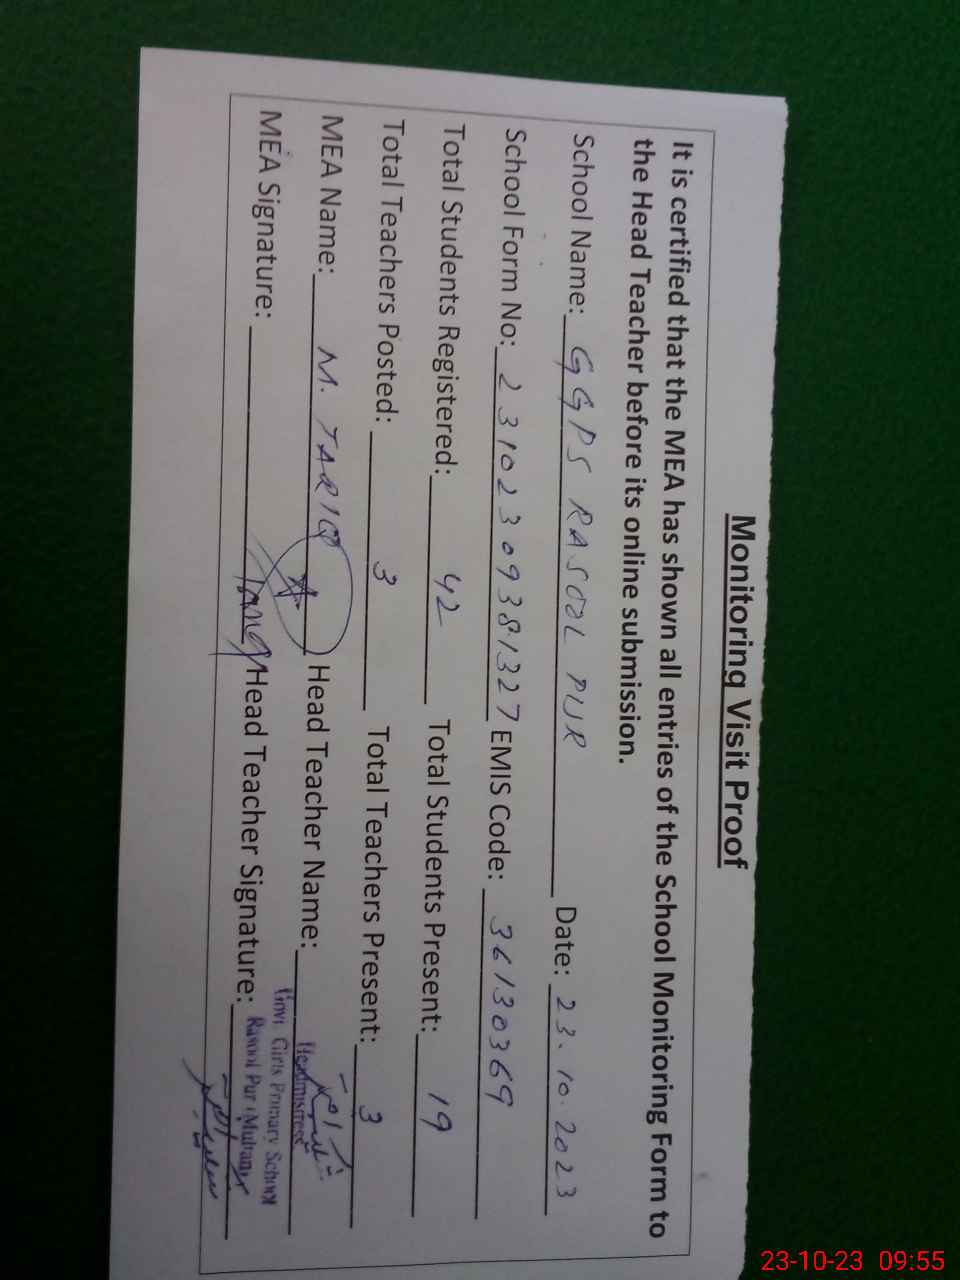 Monitoring Visit Proof
It is certified that the MEA has shown all entries of the School Monitoring Form to
the Head Teacher before its online submission.
School Name: GGPS RASOOL PUR Date: 23.10.2023
School Form No: 23102309381327 EMIS Code: 36130369
Total Students Registered: 42 Total Students Present: 19
Total Teachers Posted: 3 Total Teachers Present: 3
MEA Name: M. TARIQ Head Teacher Name:
MEA Signature: Tariq Head Teacher Signature:
Headmistress
Govt. Girls Primary School
Rasool Pur (Multan)
23-10-23 09:55